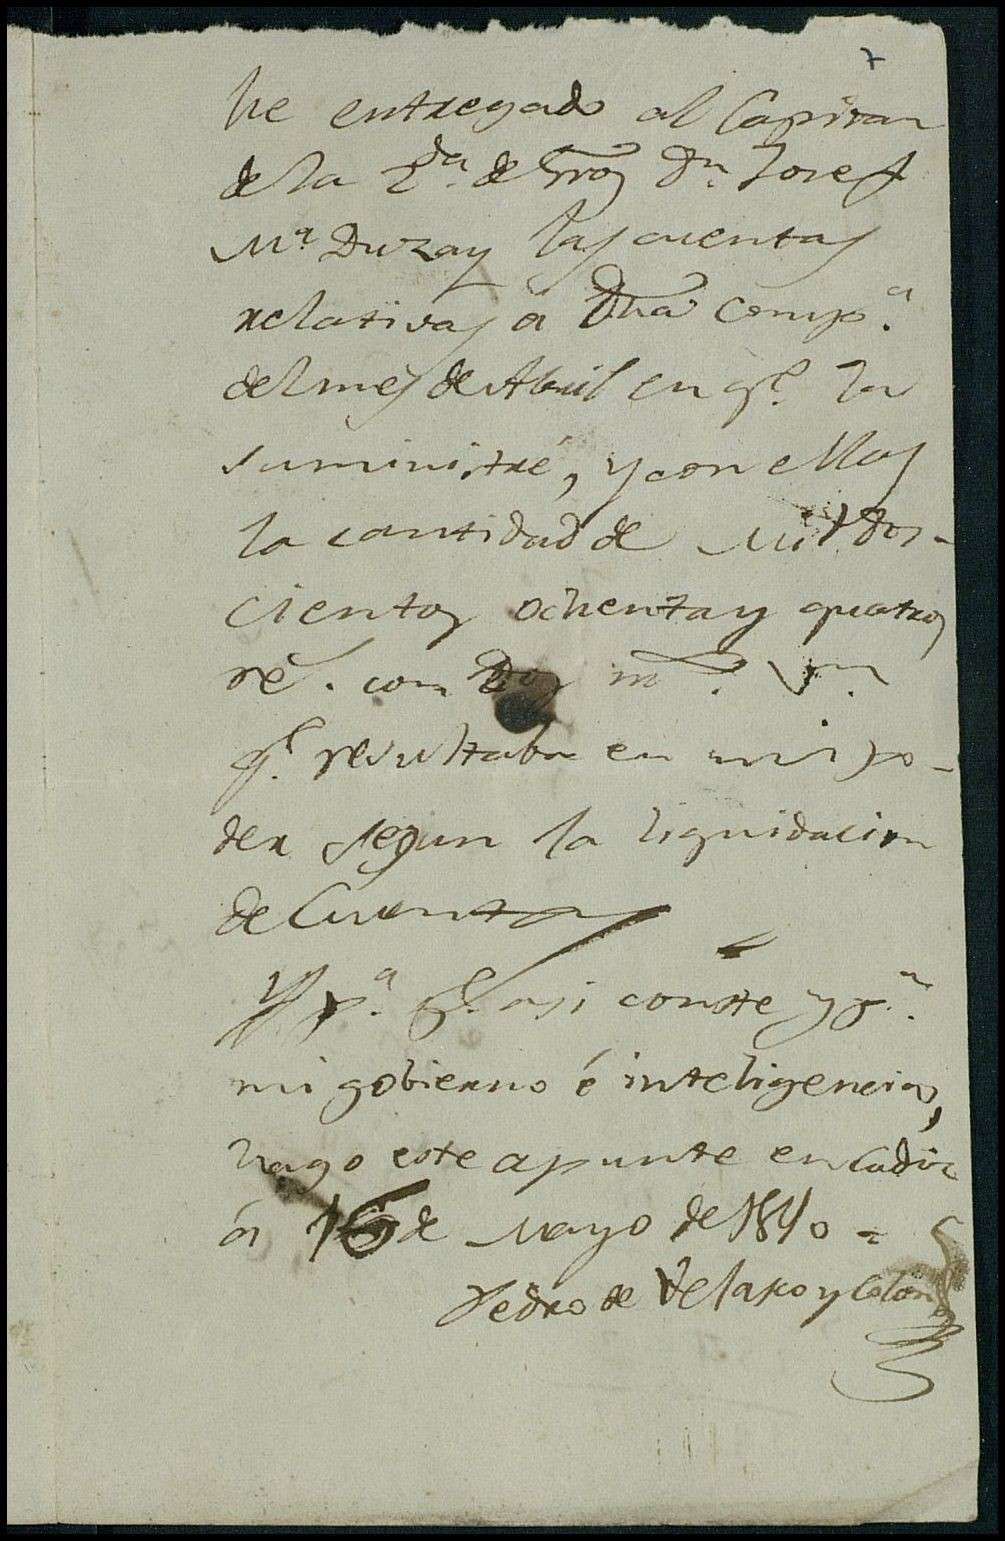 7
he entregado al Capitan
de la 2.da de Gros Dn. Josef
Ma. Duzay las cuentas
relativas á dha Comp.a
del mes de Abril en q.e la
suministré, y con ellas
la cantidad de mil dos-
cientos ochenta y quatro
rs. con dos ms. vn.
q.e resultaba en mi po-
der segun la liquidacion
de Cuentas
Y p.a q.e asi conste y p.a
mi gobierno é inteligencia,
hago este apunte en Cadiz
á 16 de Mayo de 1810 =
Pedro de Velasco y Colon